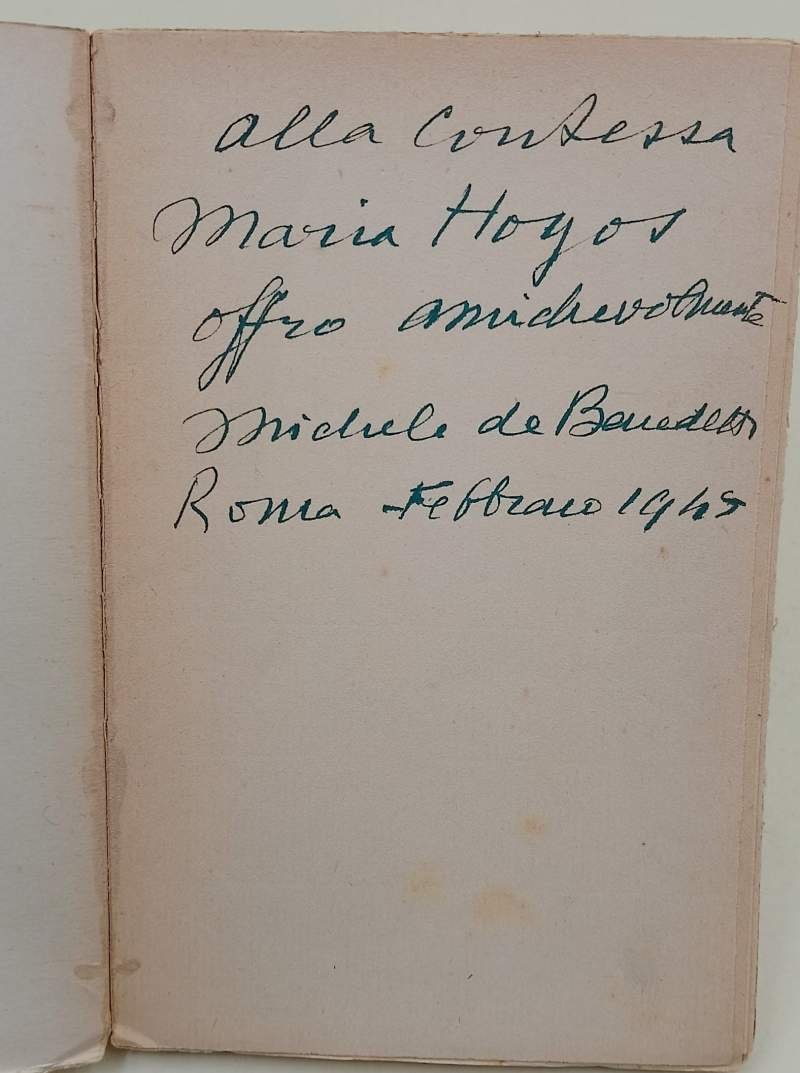 alla Contessa
Maria Hoyos
offro amichevolmente
Michele de Benedetti
Roma Febbraio 1945